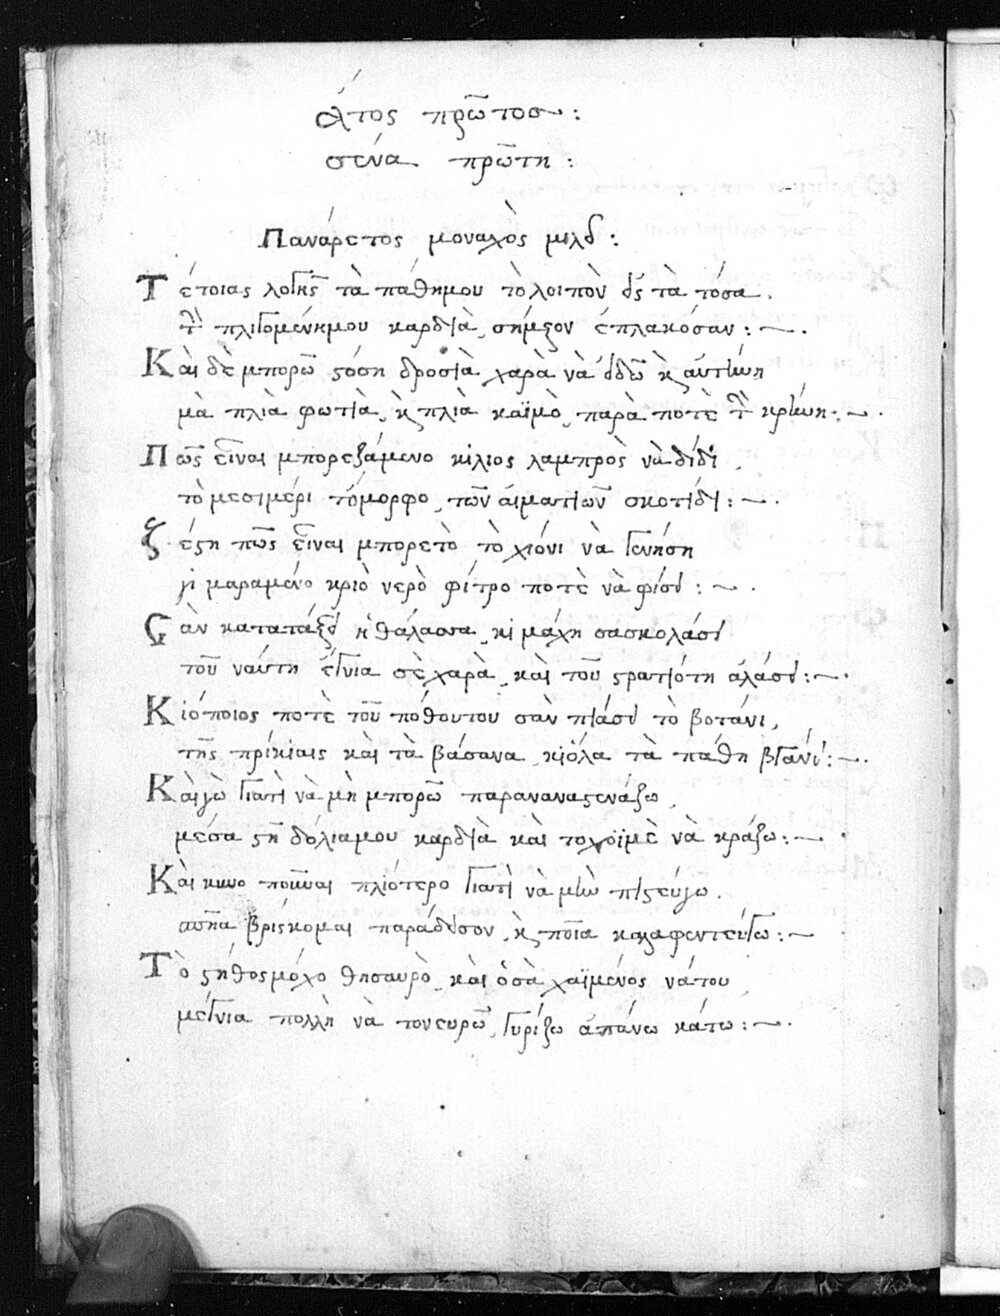 άτος πρῶτος:
σένα πρῶτη:
Πανάρετος μοναχὸς μιλεῖ:
Τέτοιας λογῆς τὰ πάθημου τὸ λοιπὸν εἰς τὰ τόσα.
τῆ πλιγομένημου καρδιὰ, σήμερον ἐπλακόσαν:~.
Καὶ δὲ μπορῶ τόση δροσϊὰ, χαρὰ νὰ ἰδῶ κ αὐτίνη
μὰ πλιὰ φωτιὰ, κ πλιὰ καϊμὸ, παρὰ ποτὲ τῆ κρίνη:~.
Πῶς εἶναι μπορεζάμενο κίλιος λαμπρὸς νὰ δίδῃ,
τὸ μεσιμέρι τόμορφο, τῶν ἀιματιῶν σκοτίδι:~.
ζέστη πῶς εἶναι μπορετὸ τὸ χιόνι νὰ γενήση
γὶ μαραμένο κριὸ νερὸ φίτρο ποτὲ νὰ φίσει:~.
Σὰν καταπάξει ἡ θάλασσα, κι μάχη σασκολάσει
τοῦ ναύτη ἔγνια σὲ χαρὰ, καὶ τοῦ στρατιότη ἀλάσει:~.
Κιόποιος ποτὲ τοῦ πόθουτου σὰν πιάσει τὸ βοτάνι,
τῆς πρίκιαις καὶ τὰ βάσανα, κιόλα τὰ πάθη βγάνει:~.
Κἀιγὼ γιατὶ νὰ μὴ μπορῶ παραναναστενάξω,
μέσα στη δόλιαμου καρδιὰ καὶ τοχοϊμὲ νὰ κράξω:~
Κὰι κεινο ποῦναι πλιότερο γιατὶ νὰ μὴν πιστεύγω.
ασῆα βρίσκομαι παράδεισον, κ ποῖα καλαφεντεύγω:~
Τὸ στήθοςμόχο θησαυρὸ, καὶ ὁσὰ χαϊμένος νάτου
μέγνια πολλὴ νὰ τονευρῶ, γυρίζω ἀπάνω κάτω:~.